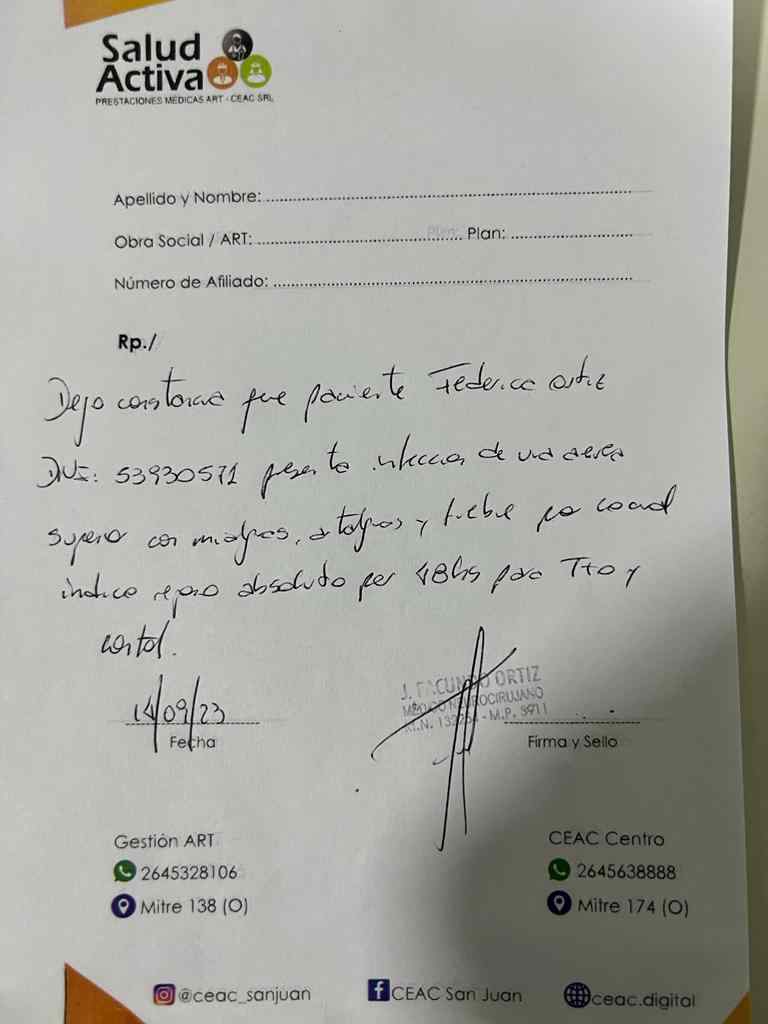 Salud
Activa
PRESTACIONES MÉDICAS ART - CEAC SRL
Apellido y Nombre:
Obra Social / ART: Plan: Plan:
Número de Afiliado:
Rp./
Dejo constancia que paciente Federico Ortiz
DNI: 53930571 presenta infeccion de via aerea
superior con mialgias, artralgias y fiebre por lo cual
indico reposo absoluto por 48hs para Tto y
control.
14/09/23
J. FACUNDO ORTIZ
MÉDICO NEUROCIRUJANO
- M.P. 3911
Fecha
Firma y Sello
Gestión ART
CEAC Centro
2645328106
2645638888
Mitre 138 (O)
Mitre 174 (O)
@ceac_sanjuan
CEAC San Juan
ceac.digital